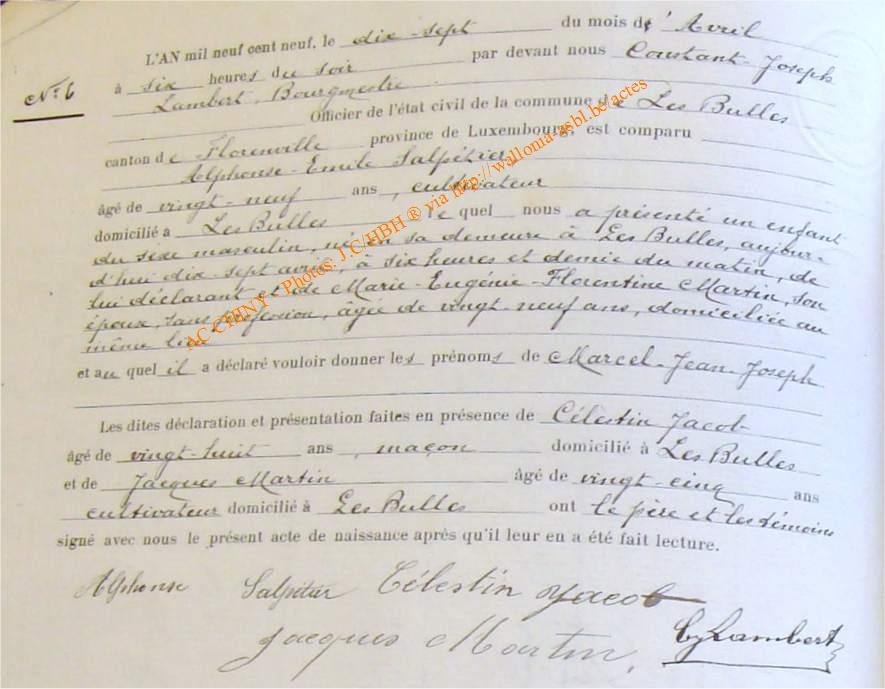 L'AN mil neuf cent neuf, le dix-sept du mois d' Avril
N° 6
à six heures du soir par devant nous Constant-Joseph
Lambert, Bourgmestre
Officier de l'état civil de la commune de Les Bulles
canton de Florenville province de Luxembourg, est comparu
Alphonse-Emile Salpétier,
âgé de vingt-neuf ans, cultivateur
domicilié à Les Bulles le quel nous a présenté un enfant
du sexe masculin, né en sa demeure à Les Bulles, aujour-
d'hui dix-sept avril, à six heures et demie du matin, de
lui déclarant et de Marie-Eugénie-Florentine Martin, son
épouse, sans profession, âgée de vingt-neuf ans, domiciliée au
même lieu
et au quel il a déclaré vouloir donner les prénoms de Marcel-Jean-Joseph
Les dites déclaration et présentation faites en présence de Célestin Jacob
âgé de vingt-huit ans, maçon domicilié à Les Bulles
et de Jacques Martin âgé de vingt-cinq ans
cultivateur domicilié à Les Bulles ont le père et les témoins
signé avec nous le présent acte de naissance après qu'il leur en a été fait lecture.
Alphonse Salpétier Célestin Jacob
Jacques Martin. CJ Lambert
AC CHINY - Photos: J.C/HBH ® via http://wallonia-asbl.be/actes